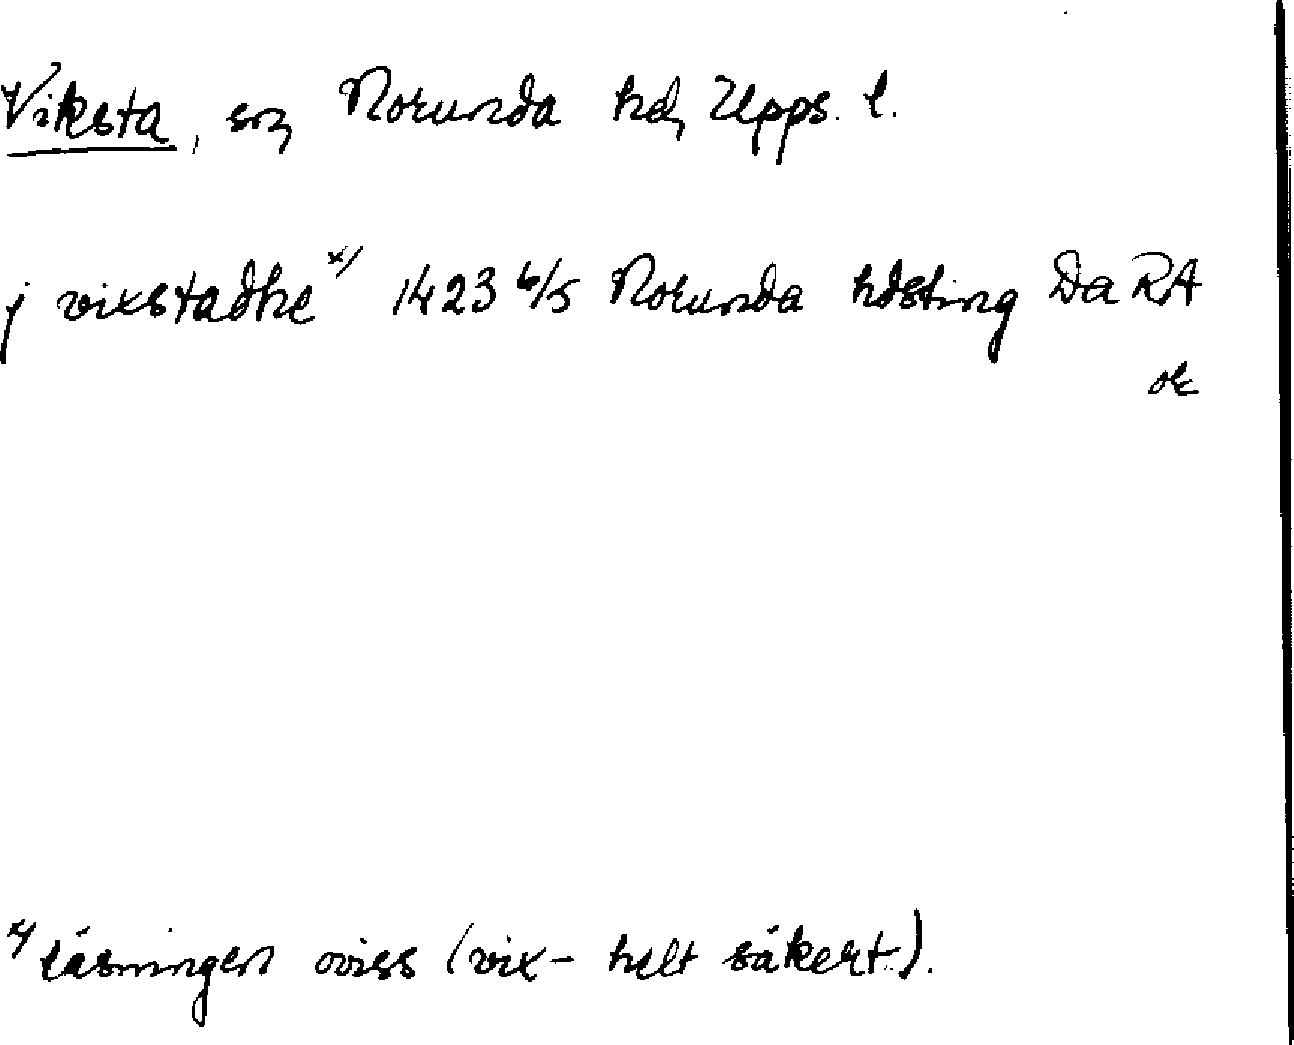 Viksta, sn, Norunda hd, Upps. l.
j vixstadhe x/ 1423 6/5 Norunda hdsting Da RA
ok
x/ läsningen oviss (vix- helt säkert).